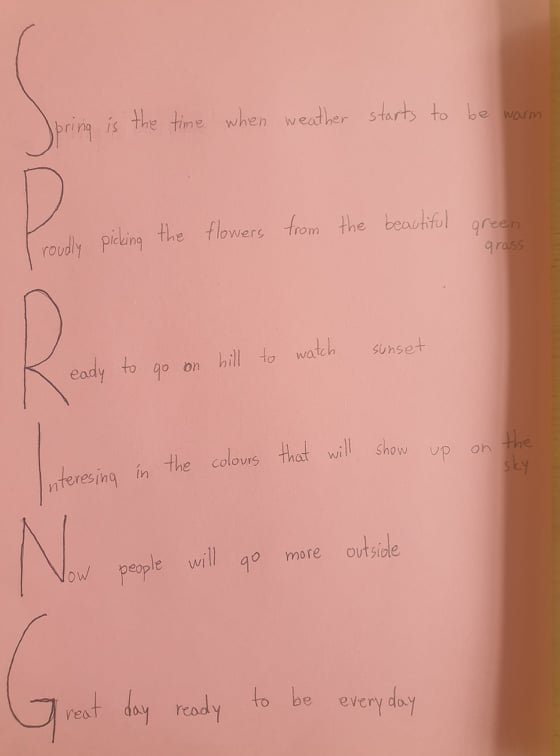 Spring is the time when weather starts to be warm
Proudly picking the flowers from the beautiful green
grass
Ready to go on hill to watch sunset
Interesing in the colours that will show up on the
sky
Now people will go more outside
Great day ready to be everyday